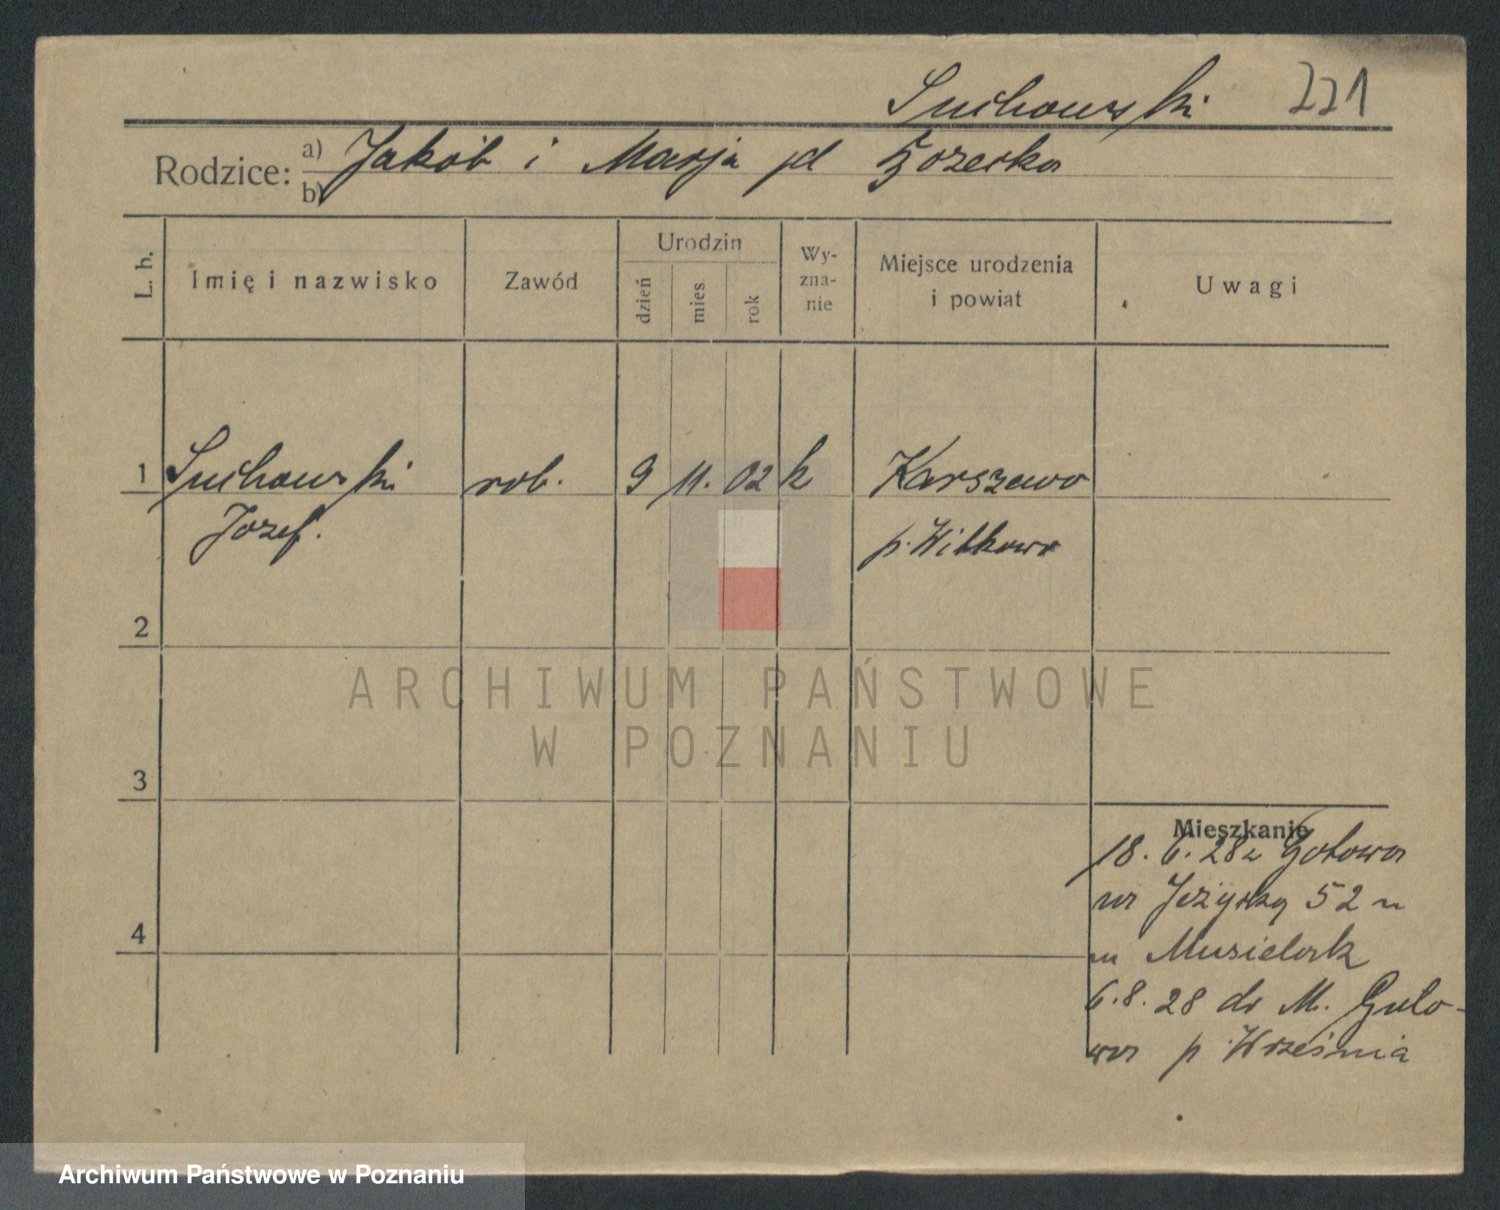 Suchowski 221
Rodzice: a) Jakób i Marja
b)
L. b. Imię i nazwisko Zawód Urodzin dzień mies. rok Wy-zna-nie Miejsce urodzenia i powiat Uwagi
1 Suchowski rob. 9 11. 02 k Karszewo
Józef. p. Witkowo
2
3
Mieszkanie
18. 6. 28 z Gutowa
ur Jeżyska 52
4
u Musielak
6. 8. 28 do M. Guto-
wa p. Września
ARCHIWUM PAŃSTWOWE
W POZNANIU
Archiwum Państwowe w Poznaniu